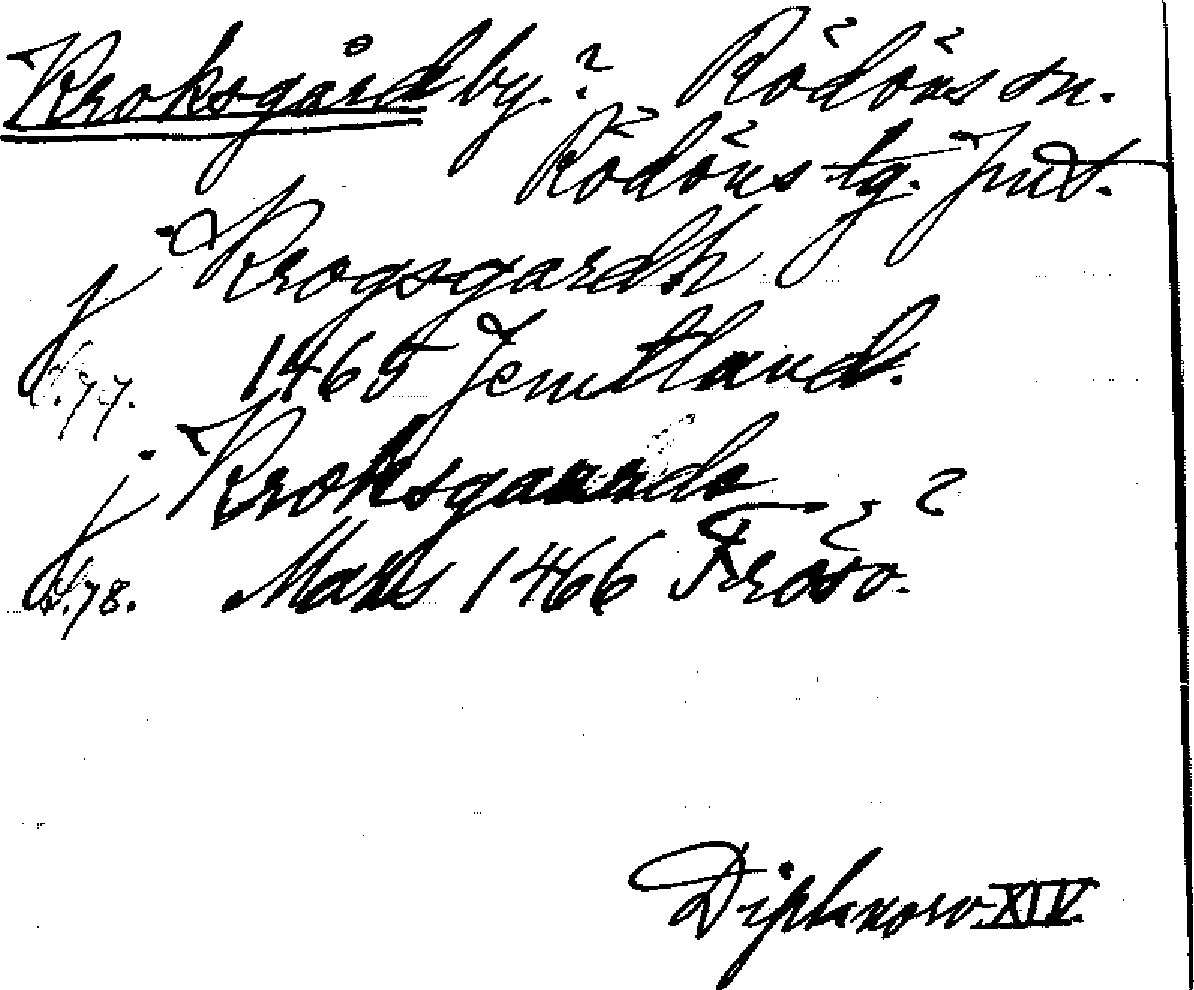 Kroksgård by.? Rödöns sn.
Rödöns tg. Jmt.
j Krogsgardh
s.77. 1465 Jemtland.
j Kroksgaarde ?
s.78. Mars 1466 Frösö.
Dipl. norv. XIV.